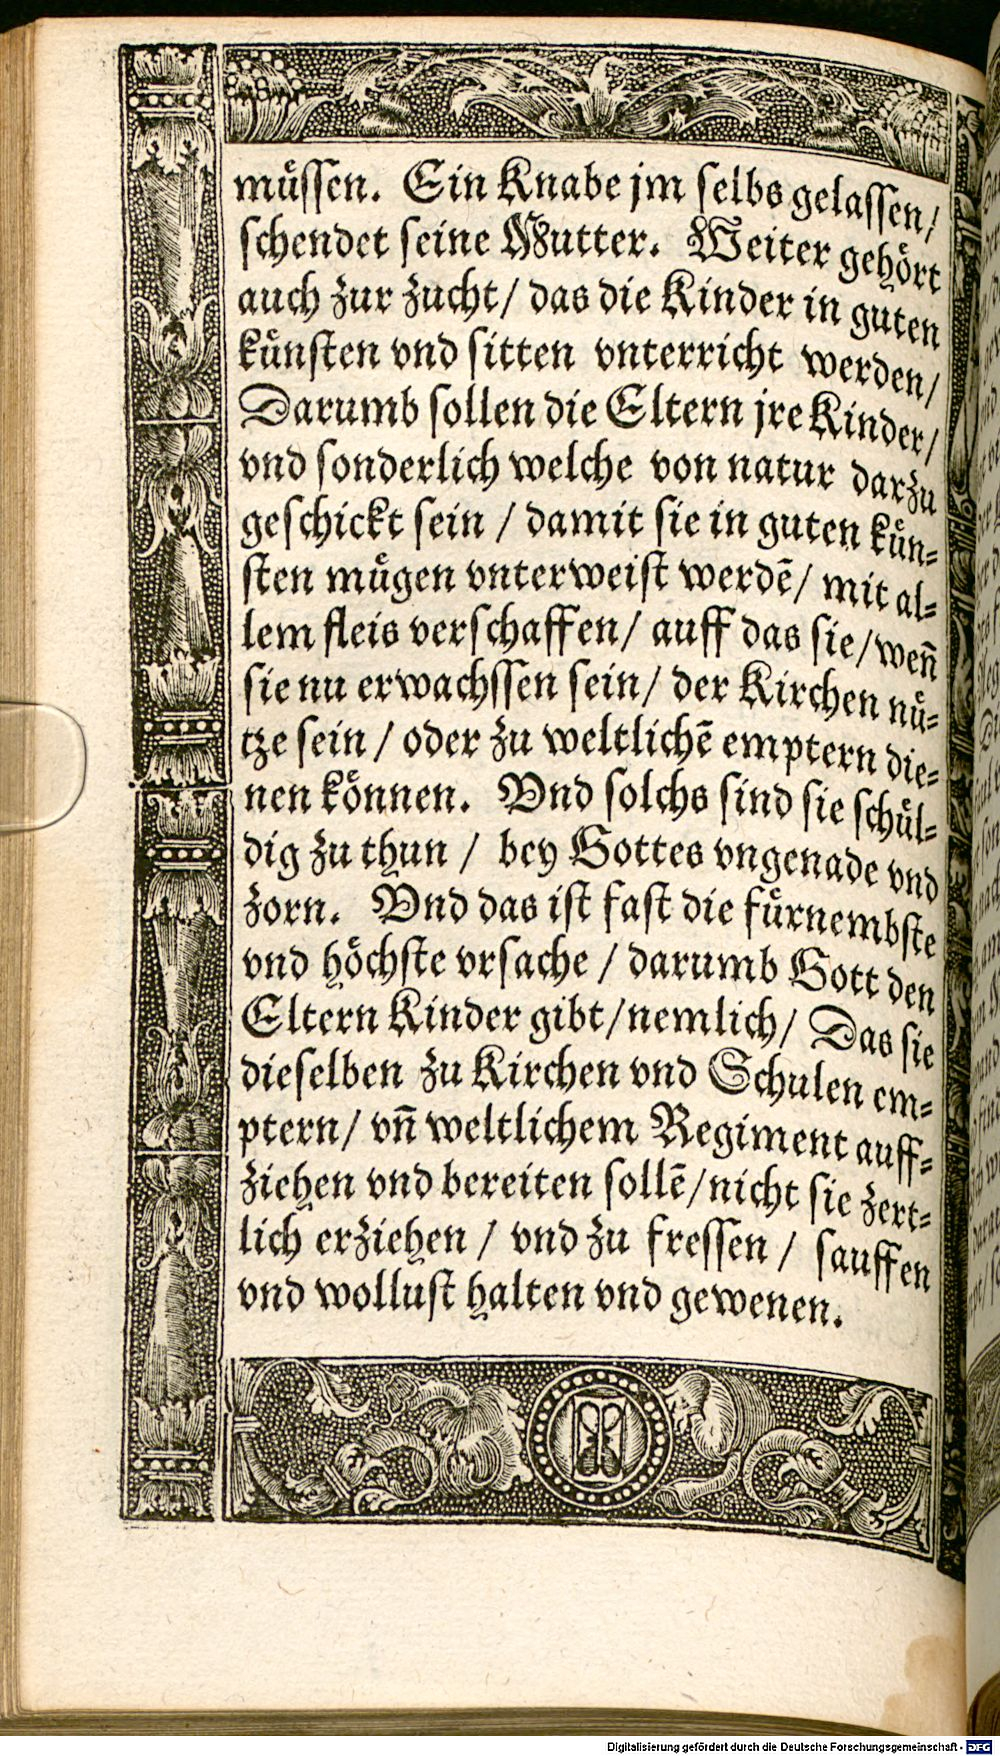 muͤssen. Ein Knabe jm selbs gelassen/
schendet seine Mutter. Weiter gehoͤrt
auch zur zucht/ das die Kinder in guten
kuͤnsten vnd sitten vnterricht werden/
Darumb sollen die Eltern jre Kinder/
vnd sonderlich welche von natur darzu
geschickt sein / damit sie in guten kuͤn⸗
sten muͤgen vnterweist werdẽ/ mit al⸗
lem fleis verschaffen/ auff das sie/ weñ
sie nu erwachssen sein/ der Kirchen nuͤ⸗
tze sein / oder zu weltlichẽ emptern die⸗
nen koͤnnen. Vnd solchs sind sie schuͤl⸗
dig zu thun / bey Gottes vngenade vnd
zorn. Vnd das ist fast die fuͤrnembste
vnd hoͤchste vrsache / darumb Gott den
Eltern Kinder gibt/ nemlich/ Das sie
dieselben zu Kirchen vnd Schulen em⸗
ptern/ vñ weltlichem Regiment auff⸗
ziehen vnd bereiten sollẽ/ nicht sie zert⸗
lich erziehen / vnd zu fressen / sauffen
vnd wollust halten vnd gewenen.
Digitalisierung gefördert durch die Deutsche Forschungsgemeinschaft - DFG